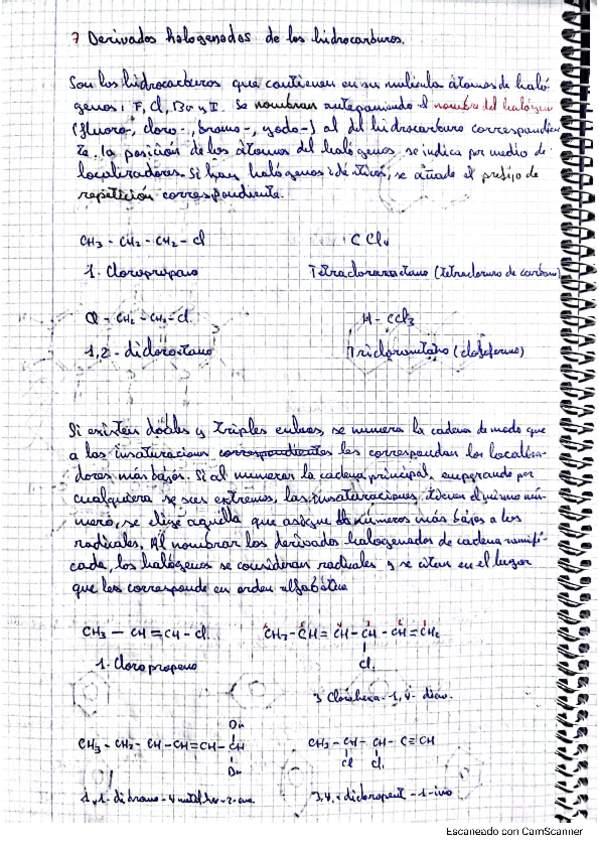 7 Derivados halogenados de los hidrocarburos.
Son los hidrocarburos que contienen en su molécula átomos de haló
genos: F, Cl, Br y I. Se nombran anteponiendo el nombre del halógeno
(fluoro-, cloro-, bromo-, yodo-) al del hidrocarburo correspondien
te. la posición de los átomos del halógenos se indica por medio de
localizadores. Si hay halógenos idénticos, se añade el prefijo de
repetición correspondiente.
CH3 - CH2 - CH2 - Cl
C Cl4
1- Cloropropano
Tetraclorometano (tetracloruro de carbono)
Cl - CH2 - CH2 - Cl.
H - CCl3
1,2 - dicloroetano
Triclorometano (cloroformo)
Si existen dobles y triples enlaces, se numera la cadena de modo que
a las insaturaciones correspondientes les correspondan los localiza-
dores más bajos. Si al numerar la cadena principal, empezando por
cualquiera de sus extremos, las insaturaciones tienen el mismo nú-
mero, se elige aquella que asigne números más bajos a los
radicales. Al nombrar los derivados halogenados de cadena ramifi-
cada, los halógenos se consideran radicales y se citan en el lugar
que les corresponde en orden alfabético
CH3 — CH = CH - Cl.
CH = CH - CH - CH = CH2
Cl.
1- Cloropropeno
3 Clorohexa-1,4-
Br
CH3 - CH2 - CH - CH = CH - CH
Br
CH3 - CH - CH - C ≡ CH
Cl Cl.
3,4 - diclopent - 1-ino
Escaneado con CamScanner